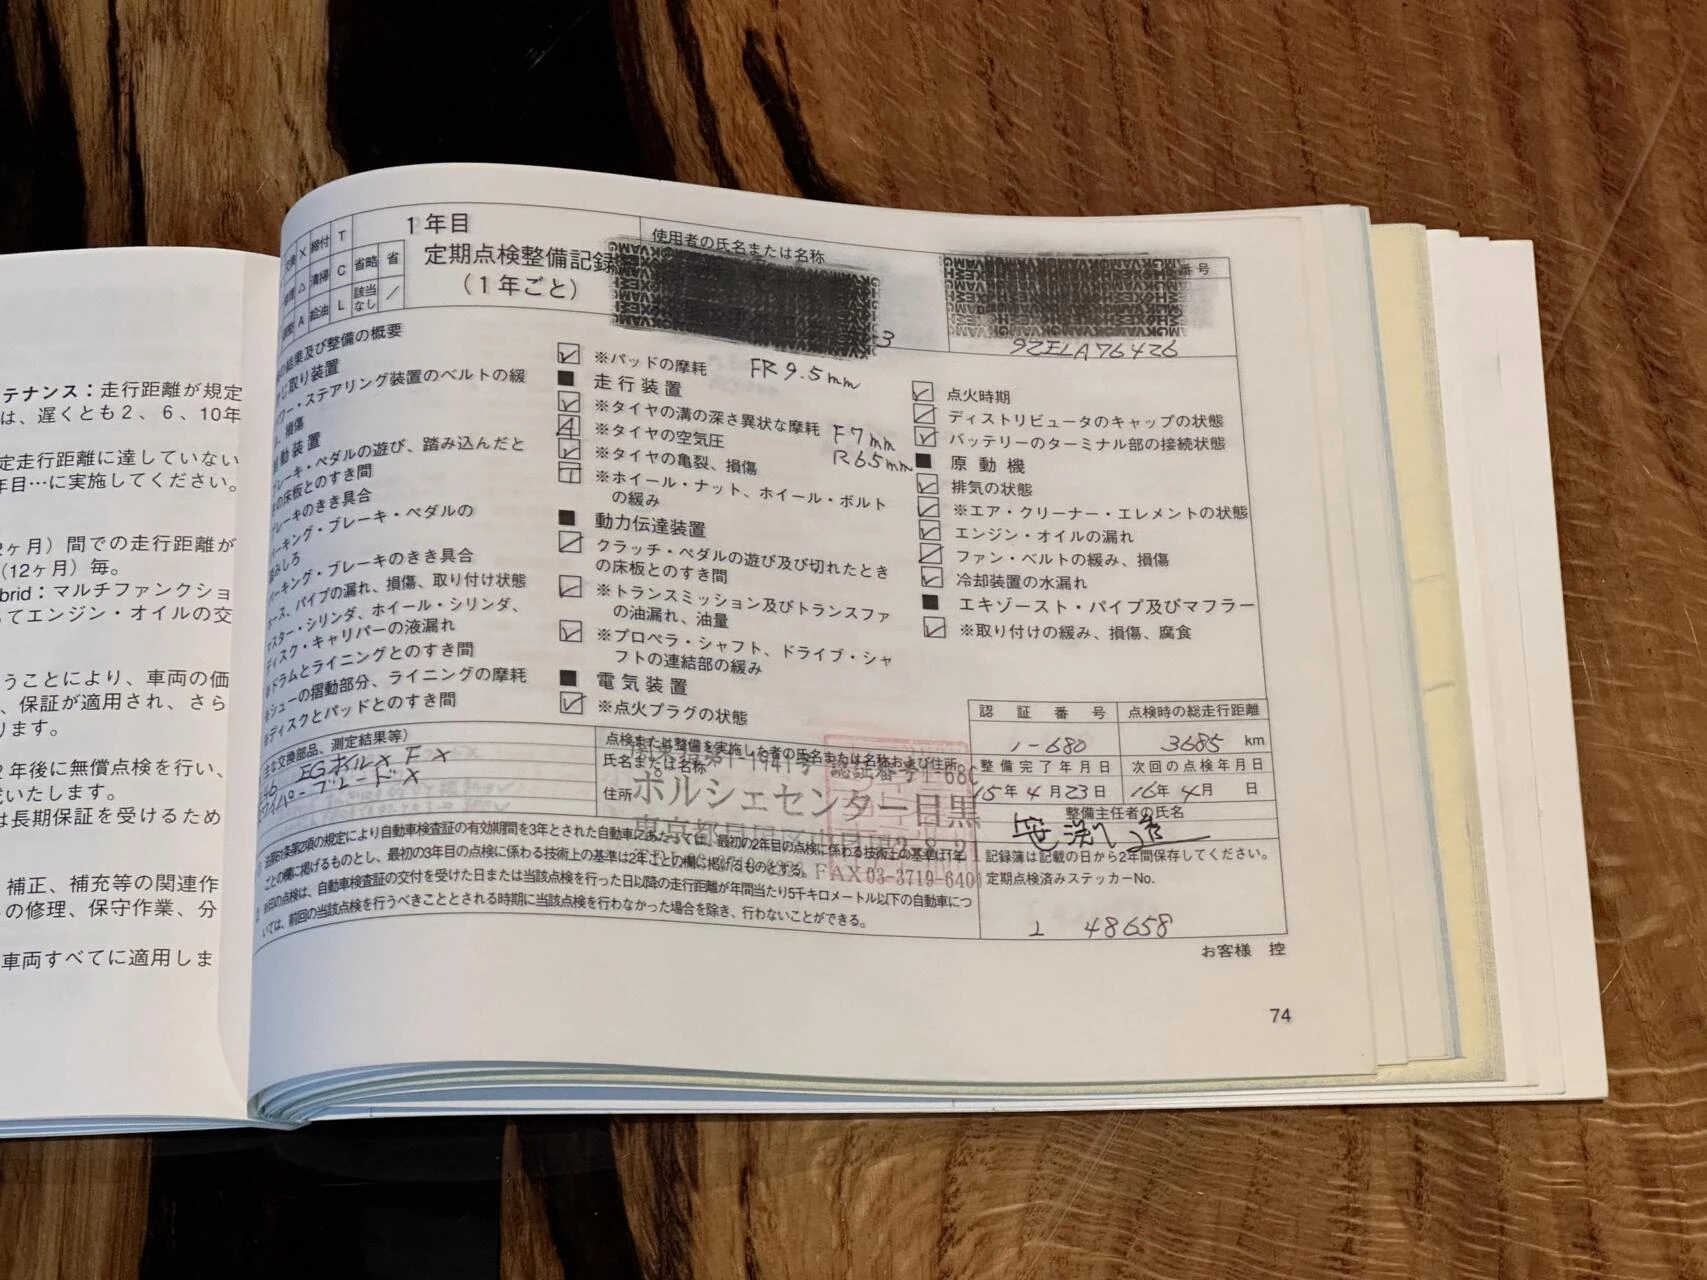 テナンス：走行距離が規定
は、遅くとも２、６、10年
定走行距離に達していない
年目…に実施してください。
ヶ月）間での走行距離が
（12ヶ月）毎。
brid：マルチファンクショ
ってエンジン・オイルの交
うことにより、車両の価
、保証が適用され、さら
ります。
２年後に無償点検を行い、
いたします。
は長期保証を受けるため
補正、補充等の関連作
の修理、保守作業、分
車両すべてに適用しま
１年目
定期点検整備記録
（１年ごと）
交換 X 締付 T
清掃 C 省略 省
A 給油 L 該当なし ／
使用者の氏名または名称
番号
3
9ZELA76426
結果及び整備の概要
じ取り装置
パワー・ステアリング装置のベルトの緩
損傷
制動装置
ブレーキ・ペダルの遊び、踏み込んだと
の床板とのすき間
ブレーキのきき具合
パーキング・ブレーキ・ペダルの
踏みしろ
パーキング・ブレーキのきき具合
ホース、パイプの漏れ、損傷、取り付け状態
マスター・シリンダ、ホイール・シリンダ、
ディスク・キャリパーの液漏れ
※ドラムとライニングとのすき間
※シューの摺動部分、ライニングの摩耗
※ディスクとパッドとのすき間
※パッドの摩耗 FR 9.5mm
■ 走行装置
※タイヤの溝の深さ異状な摩耗 F7mm
A ※タイヤの空気圧 R6.5mm
※タイヤの亀裂、損傷
T ※ホイール・ナット、ホイール・ボルト
の緩み
■ 動力伝達装置
クラッチ・ペダルの遊び及び切れたとき
の床板とのすき間
※トランスミッション及びトランスファ
の油漏れ、油量
※プロペラ・シャフト、ドライブ・シャ
フトの連結部の緩み
■ 電気装置
※点火プラグの状態
点火時期
ディストリビュータのキャップの状態
バッテリーのターミナル部の接続状態
■ 原動機
排気の状態
※エア・クリーナー・エレメントの状態
エンジン・オイルの漏れ
ファン・ベルトの緩み、損傷
冷却装置の水漏れ
■ エキゾースト・パイプ及びマフラー
※取り付けの緩み、損傷、腐食
主な交換部品、測定結果等）
EGオイルX FX
ワイパーブレードX
点検または整備を実施した者の氏名または名称および住所
氏名または名称
住所
認証番号1-680
ポルシェセンター目黒
東京都目黒区
FAX03-3719-6401
認証番号 点検時の総走行距離
1-680 3685 km
整備完了年月日 次回の点検年月日
15年4月23日 16年4月 日
整備主任者の氏名
記録簿は記載の日から2年間保存してください。
定期点検済みステッカーNo.
1 48658
項の規定により自動車検査証の有効期間を3年とされた自動車にあたっては、最初の2年目の点検に係わる技術上の基準は1年
ごとの欄に掲げるものとし、最初の3年目の点検に係わる技術上の基準は2年ごとの欄に掲げるものとする。
の点検は、自動車検査証の交付を受けた日または当該点検を行った日以降の走行距離が年間当たり5千キロメートル以下の自動車につ
いては、前回の当該点検を行うべきこととされる時期に当該点検を行わなかった場合を除き、行わないことができる。
お客様 控
74